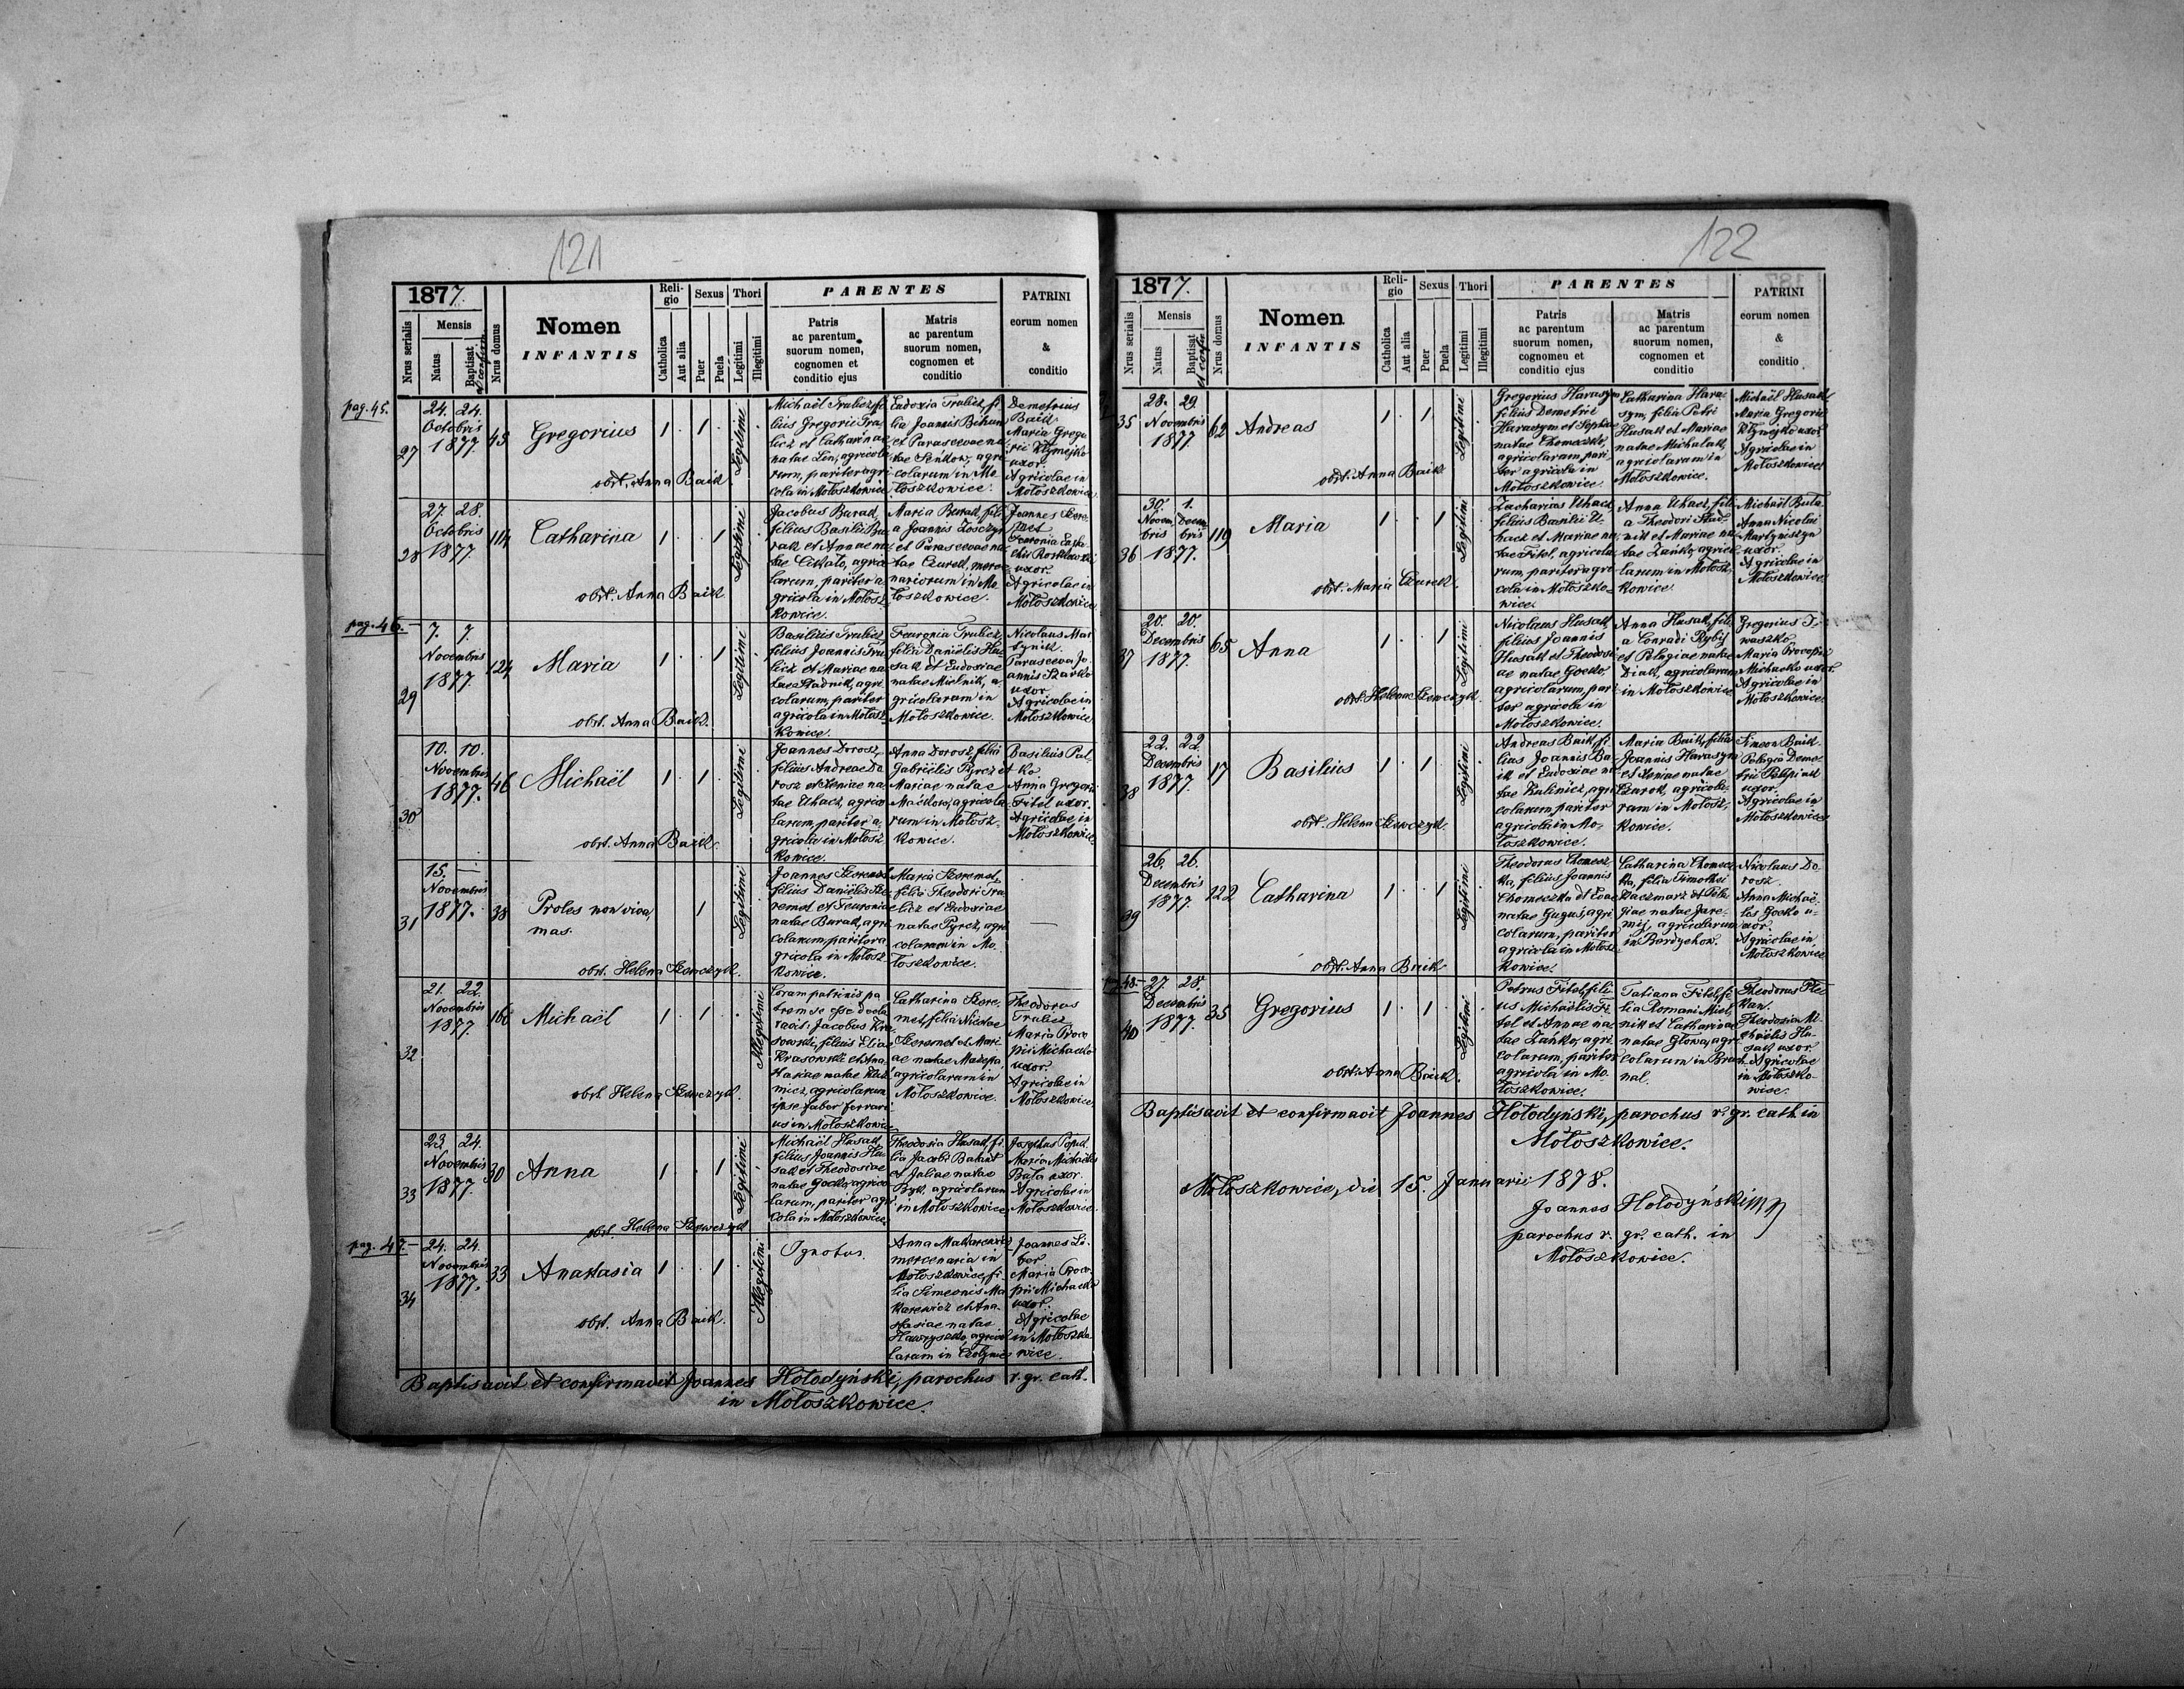 121
1877.
Nrus serialis
Mensis
Natus
Baptisat. et confirm.
Nrus domus
Nomen
INFANTIS
Reli-
gio
Catholica
Aut alia
Sexus
Puer
Puela
Thori
Legitimi
Illegitimi
PARENTES
Patris
ac parentum
suorum nomen,
cognomen et
conditio ejus
Matris
ac parentum
suorum nomen,
cognomen et
conditio
PATRINI
eorum nomen
&
conditio
pag. 45.
27
24. 24.
Octobris
1877.
45
Gregorius
1 . 1 .
Legitimi
obst. Anna Baik.
Michaël Trulicz, fi-
lius Gregorii Tru-
licz et Catharinae
natae Len, agricola-
rum, pariter agri-
cola in Mołoszkowice
Eudoxia Trulicz, fi-
lia Joannis Bihun
et Parascevae na-
tae Senkow, agri-
colarum in Mo-
łoszkowice.
Demetrius
Baik
Maria Grego-
rii Klymejko
uxor.
Agricolae in
Mołoszkowice
28
27. 28.
Octobris
1877.
114
Catharina
1 . . 1
Legitimi
obst. Anna Baik
Jacobus Burak,
filius Basilii Bu-
rak et Annae na-
tae Cikało, agrico-
larum, pariter a-
gricola in Mołosz-
kowice.
Maria Burak, fili-
a Joannis
et Parascevae na-
tae Czurok, merce-
nariorum in Mo-
łoszkowice.
Joannes Szere-
met
uxor.
Agricolae in
Mołoszkowice
pag. 46.
29
7. 7.
Novembris
1877.
124
Maria
1 . . 1
Legitimi
obst. Anna Baik.
Basilius Trulicz,
filius Joannis Tru-
licz et Mariae na-
tae Stadnik, agri-
colarum, pariter
agricola in Mołosz-
kowice.
Feuronia Trulicz,
filia Daniëlis Hu-
sak et Eudoxiae
natae Mielnik, a-
gricolarum in
Mołoszkowice.
Nicolaus Mar-
tynik.
Parasceva Jo-
annis Szarko
uxor.
Agricolae in
Mołoszkowice
30
10. 10.
Novembris
1877.
46
Michaël
1 . 1 .
Legitimi
obst. Anna Baik.
Joannes Dorosz,
filius Andreae Do-
rosz et Xeniae na-
tae Uhacz, agrico-
larum, pariter a-
gricola in Mołosz-
kowice.
Anna Dorosz, filia
Gabriëlis Pyrcz et
Mariae natae
Maćkow, agricola-
rum in Mołosz-
kowice.
Basilius Pul-
ko
Anna Gregorii
Fitel uxor.
Agricolae in
Mołoszkowice
31
15. —
Novembris
1877.
38
Proles non viva,
mas.
1
Legitimi
obst. Helena Szewczyk.
Joannes Szeremet
filius Daniëlis Sze-
remet et Feuroniae
natae Burak, agri-
colarum, pariter a-
gricola in Mołosz-
kowice.
Maria Szeremet,
filia Theodori Tru-
licz et Eudoxiae
natae Pyrcz, agri-
colarum in Mo-
łoszkowice.
—
32
21. 22.
Novembris
1877.
Michaël
1 . 1 .
Illegitimi
obst. Helena Szewczyk.
Coram patrinis pa-
trem se esse decla-
ravit: Jacobus Kra-
sowski, filius Eliae
Krasowski et Ana-
stasiae natae
agricolarum
ipse faber ferrari-
us in Mołoszkowice
Catharina Szere-
met, filia Nicolae
Szeremet et Mari-
ae natae Mazepa,
agricolarum in
Mołoszkowice.
Theodorus
Trulicz
Maria Proco-
pii Michaelko
uxor.
Agricolae in
Mołoszkowice.
33
23. 24.
Novembris
1877.
30
Anna
1 . . 1
Legitimi
obst. Helena Szewczyk
Michaël Husak,
filius Joannis Hu-
sak et Theodosiae
natae Gocko, agrico-
larum, pariter agri-
cola in Mołoszkowice
Theodosia Husak, fi-
lia Jacobi
et Juliae natae
Byk, agricolarum
in Mołoszkowice
Josephus
Maria Michaëlis
Buła uxor.
Agricolae in
Mołoszkowice.
pag. 47.
34
24. 24.
Novembris
1877.
33
Anastasia
1 . . 1
Illegitimi
obst. Anna Baik.
Ignotus.
Anna Makarewicz
mercenaria in
Mołoszkowice, fi-
lia Simeonis Ma-
karewicz et Ana-
stasiae natae
Hawryszko, agrico-
larum in
Joannes Li-
ber
Maria Proco-
pii Michaelko
uxor.
Agricolae
in Mołoszko-
wice.
Baptisavit et confirmavit Joannes Hołodyński, parochus r. gr. cath.
in Mołoszkowice.
122
1877.
Nrus serialis
Mensis
Natus
Baptisat. et confir.
Nrus domus
Nomen
INFANTIS
Reli-
gio
Catholica
Aut alia
Sexus
Puer
Puela
Thori
Legitimi
Illegitimi
PARENTES
Patris
ac parentum
suorum nomen,
cognomen et
conditio ejus
Matris
ac parentum
suorum nomen,
cognomen et
conditio
PATRINI
eorum nomen
&
conditio
35
28. 29.
Novembris
1877
62
Andreas
1 . 1 .
Legitimi
obst. Anna Baik
Gregorius Harasym
filius Demetrii
Harasym et Sophiae
natae Chomeczko,
agricolarum, pari-
ter agricola in
Mołoszkowice.
Catharina Hara-
sym, filia Petri
Husak et Mariae
natae Michalak,
agricolarum in
Mołoszkowice.
Michaël Husak
Maria Gregorii
Klymejko uxor.
Agricolae in
Mołoszkowice
36
30. 1.
Novem- Decem-
bris bris
1877.
119
Maria
1 . . 1
Legitimi
obst. Maria Czurok.
Zacharias Uhacz
filius Basilii U-
hacz et Mariae na-
tae Fitel, agricola-
rum, pariter agri-
cola in Mołoszko-
wice.
Anna Uhacz, fili-
a Theodori Stad-
nik et Mariae na-
tae Zańko, agrico-
larum in Mołosz-
kowice.
Michaël Buła.
Anna Nicolai
Martyniszyn
uxor.
Agricolae in
Mołoszkowice
37
20. 20.
Decembris
1877.
65
Anna
1 . . 1
Legitimi
obst. Helena Szewczyk.
Nicolaus Husak,
filius Joannis
Husak et Theodosi-
ae natae Gocko,
agricolarum, pari-
ter agricola in
Mołoszkowice.
Anna Husak, fili-
a Conradi Rybij
et Pelagiae natae
Diak, agricolarum
in Mołoszkowice
Gregorius I-
waszko.
Maria Procopii
Michaelko uxor.
Agricolae in
Mołoszkowice.
38
22. 22.
Decembris
1877.
17
Basilius
1 . 1 .
Legitimi
obst. Helena Szewczyk.
Andreas Baik, fi-
lius Joannis Ba-
ik et Eudoxiae na-
tae Kalinicz, agri-
colarum, pariter
agricola in Mo-
łoszkowice.
Maria Baik, filia
Joannis Harasym
et Xeniae natae
Czurok, agricola-
rum in Mołosz-
kowice.
Simeon Baik.
Pelagia Deme-
trii
uxor.
Agricolae in
Mołoszkowice
39
26. 26.
Decembris
1877.
122
Catharina
1 . . 1
Legitimi
obst. Anna Baik
Theodorus Chomecz-
ko, filius Joannis
Chomeczko et Evae
natae Guguś, agri-
colarum, pariter
agricola in Mołosz-
kowice.
Catharina Chomecz-
ko, filia Timothei
Kaczmarz et Pela-
giae natae Jare-
mij, agricolarum
in Berdychow.
Nicolaus Do-
rosz.
Anna Michaë-
lis Gocko u-
xor.
Agricolae in
Mołoszkowice
pag. 48.
40
27. 28.
Decembris
1877.
35
Gregorius
1 . 1 .
Legitimi
obst. Anna Baik.
Petrus Fitel, fili-
us Michaëlis Fi-
tel et Annae na-
tae Zańko, agri-
colarum, pariter
agricola in Mo-
łoszkowice.
Tatiana Fitel, fi-
lia Romani Miel-
nik et Catharinae
natae Głowa, agri-
colarum in Bruch-
nal.
Theodorus
Theodosia Mi-
chaëlis Hu-
sak uxor.
Agricolae
in Mołoszko-
wice.
Baptisavit et confirmavit Joannes Hołodyński, parochus r. gr. cath. in
Mołoszkowice.
Mołoszkowice, die 15. Januarii 1878.
Joannes Hołodyński mp
parochus r. gr. cath. in
Mołoszkowice.